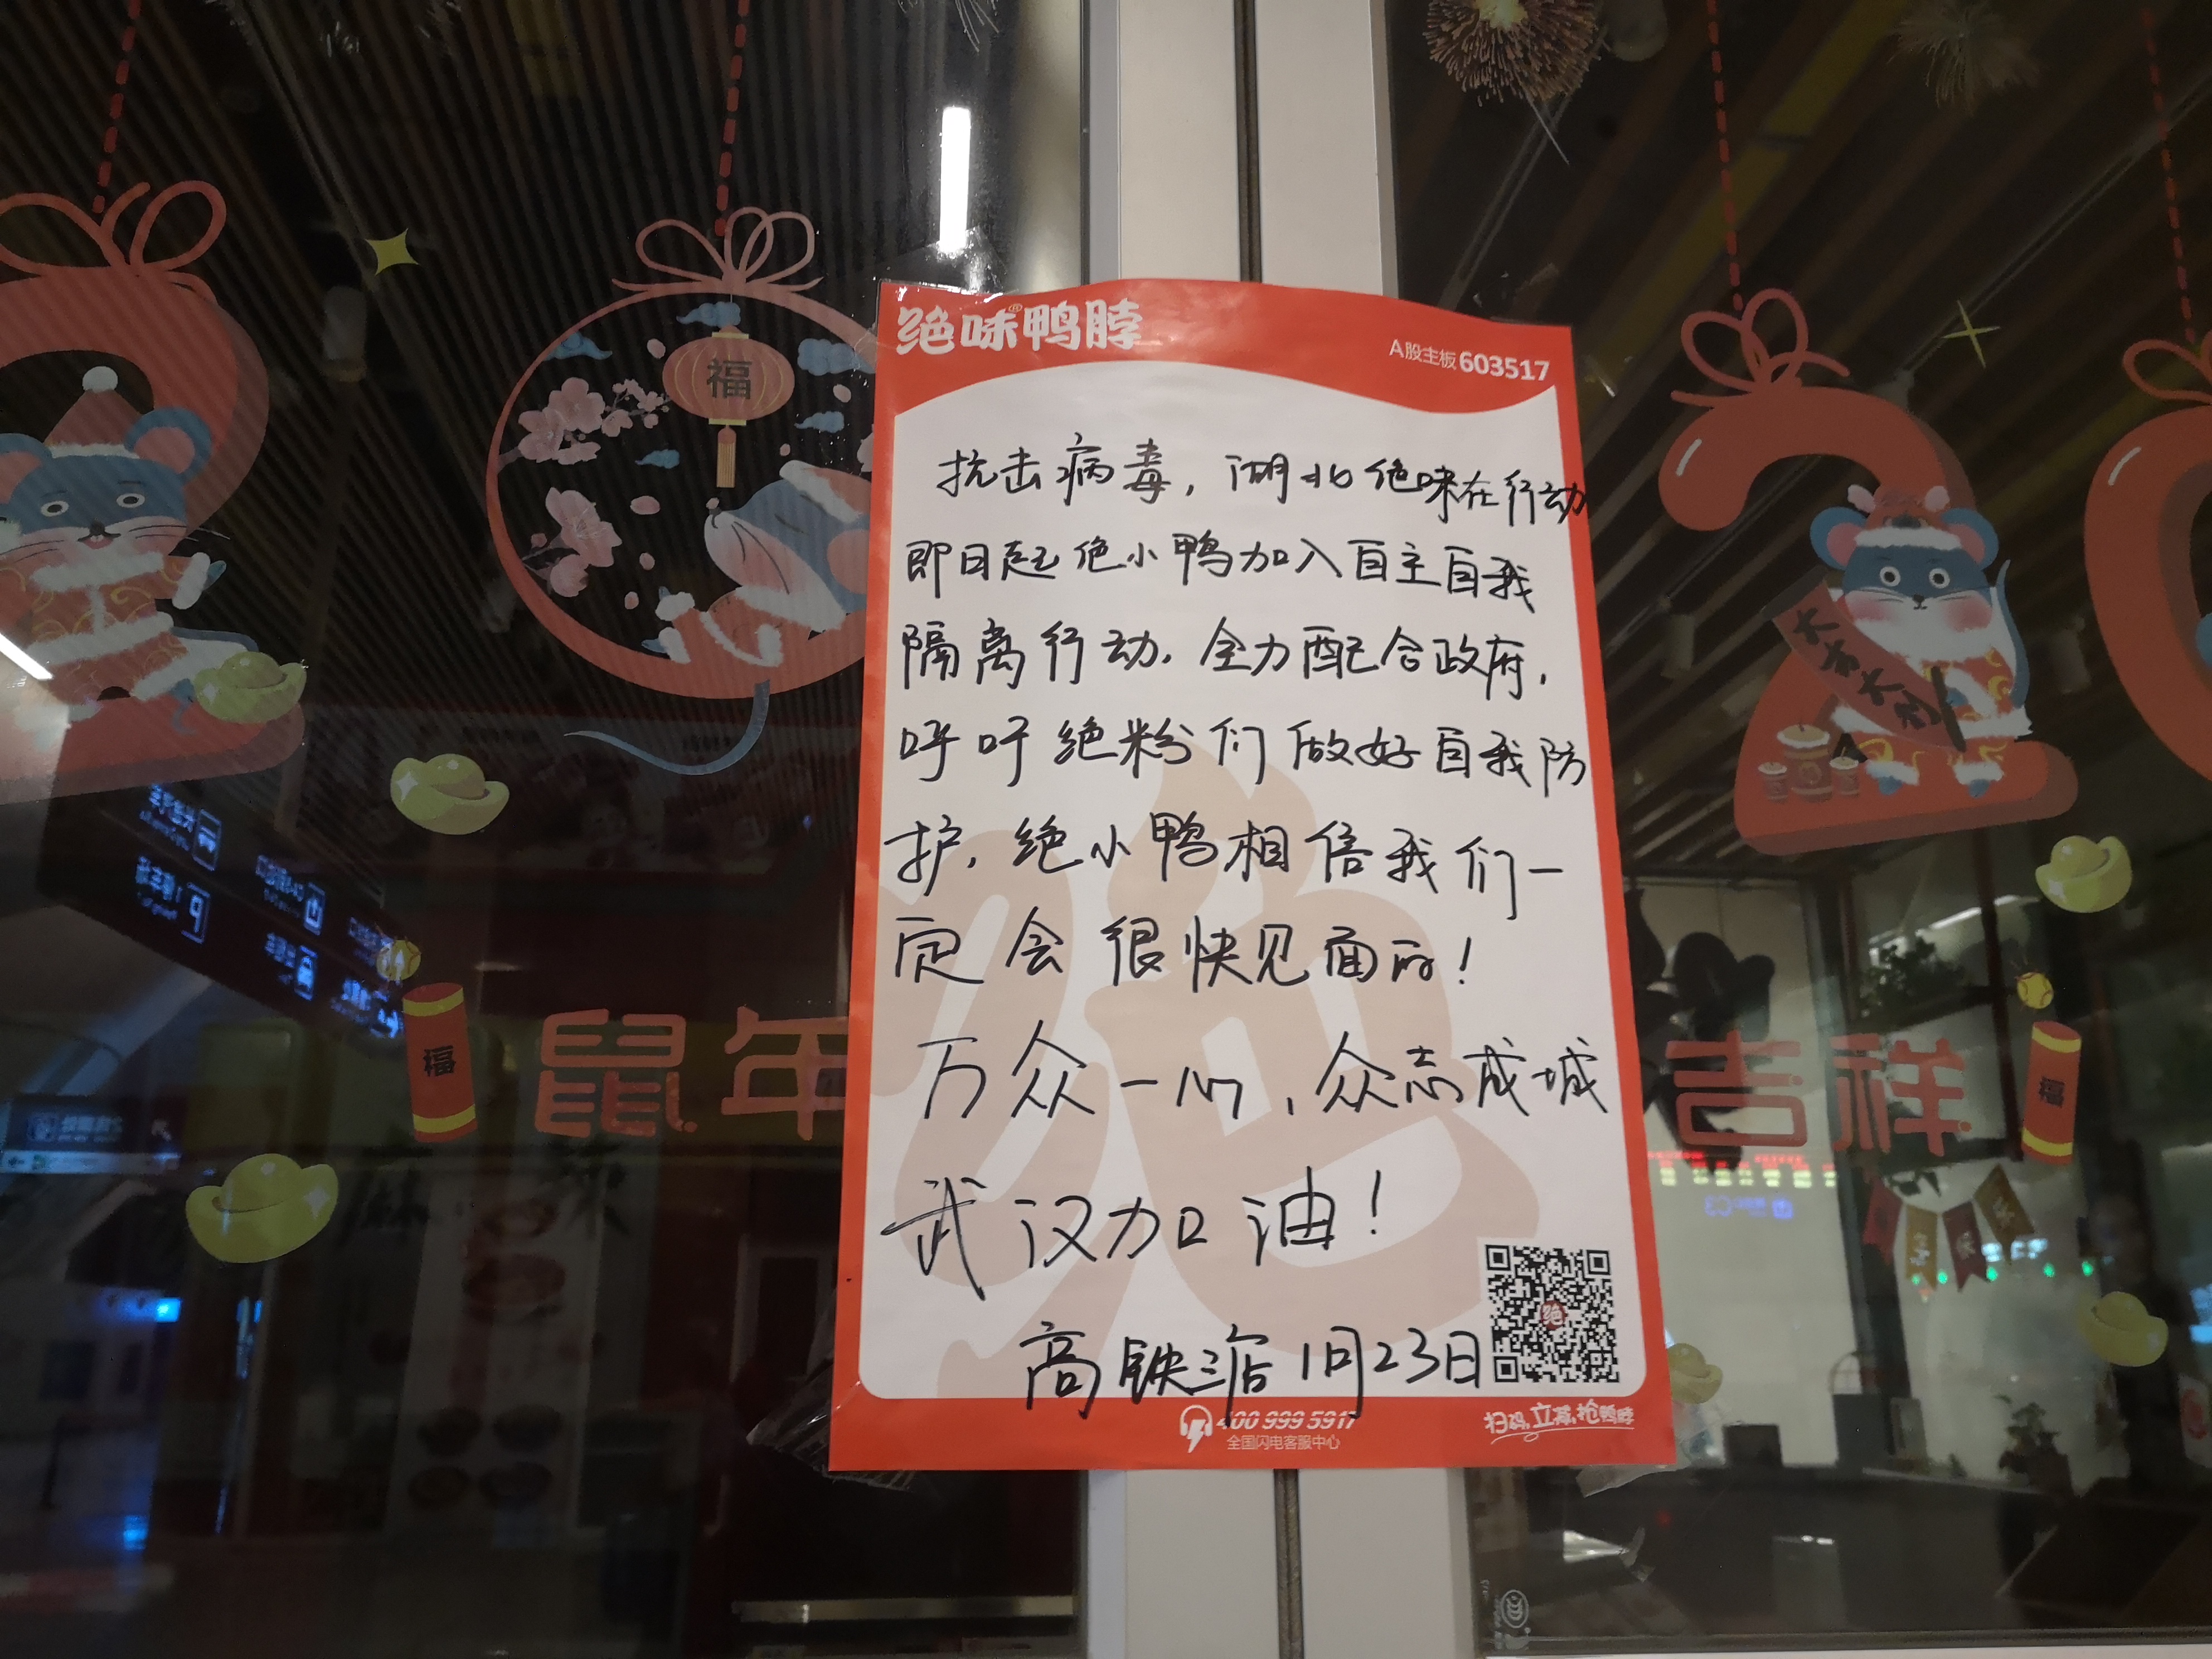 绝味®鸭脖
A股主板603517
抗击病毒，湖北绝味在行动
即日起绝小鸭加入自主自我
隔离行动，全力配合政府，
呼吁绝粉们做好自我防
护，绝小鸭相信我们一
定会很快见面的！
万众一心，众志成城
武汉加油！
高铁三店1月23日
400 999 5917
全国闪电客服中心
扫码，立减，抢鸭脖
绝
福
大吉大利
福
鼠年
吉祥
福